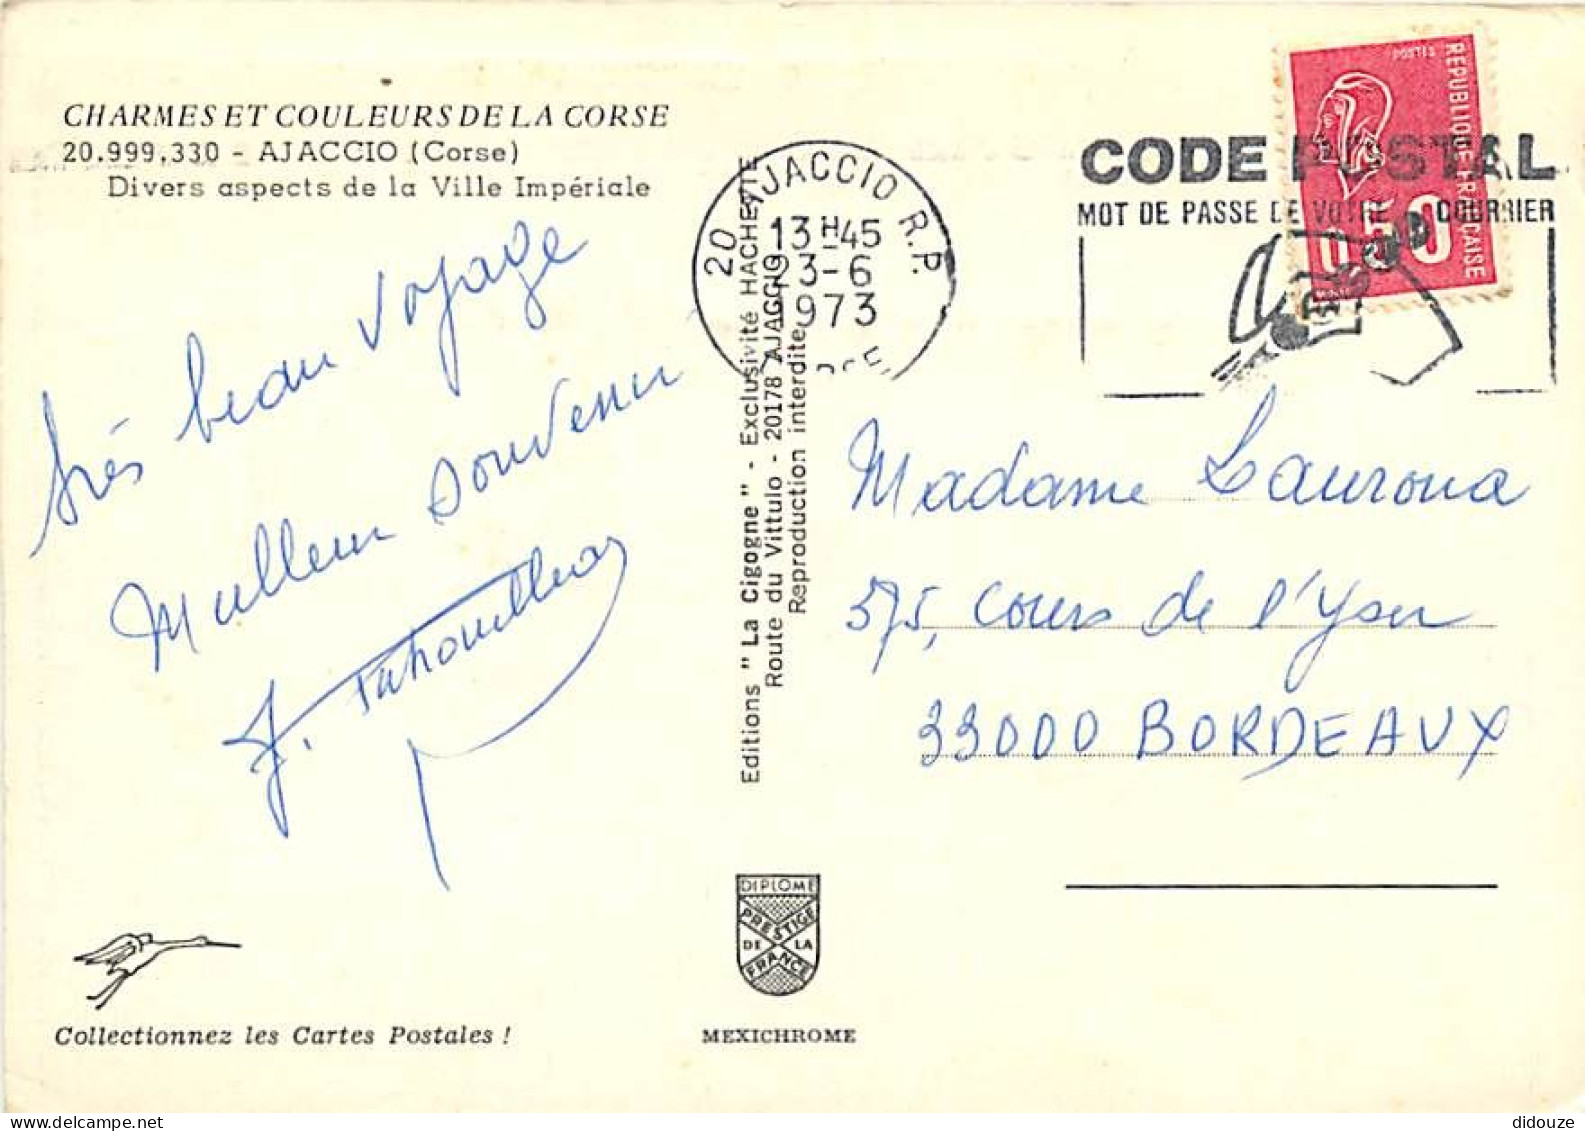 CHARMES ET COULEURS DE LA CORSE
20.999.330 - AJACCIO (Corse)
Divers aspects de la Ville Impériale
très beau voyage
Meilleur souvenir
20 AJACCIO R.P.
13H45
23-6
1973
CODE POSTAL
MOT DE PASSE DE VOTRE COURRIER
POSTES
REPUBLIQUE FRANÇAISE
0.50
Editions " La Cigogne " - Exclusivité HACHETTE
Route du Vittulo - 20178 AJACCIO
Reproduction interdite
Madame Lauroua
575, cours de l'Yser
33000 BORDEAUX
DIPLOME
PRESTIGE
DE LA
FRANCE
Collectionnez les Cartes Postales !
MEXICHROME
didouze